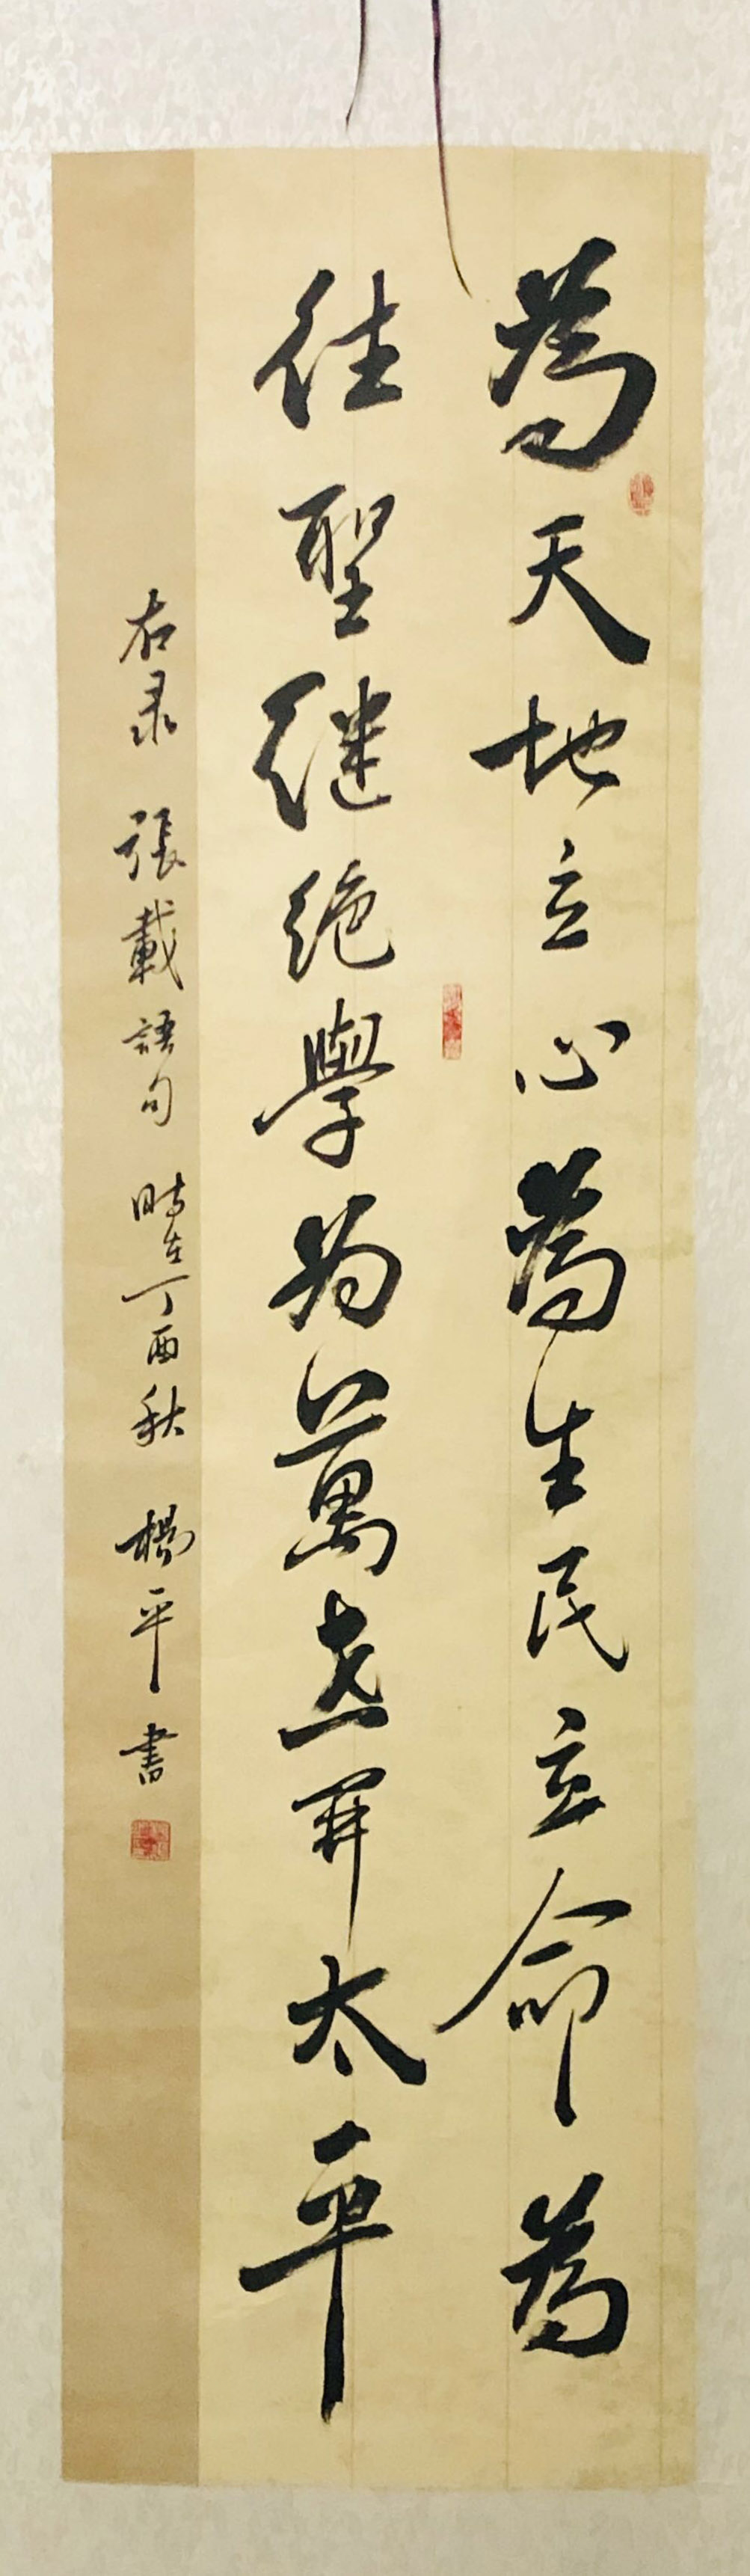 為天地立心為生民立命為
往聖继絶學为萬世開太平
右录張載語句時在丁酉秋楊平書